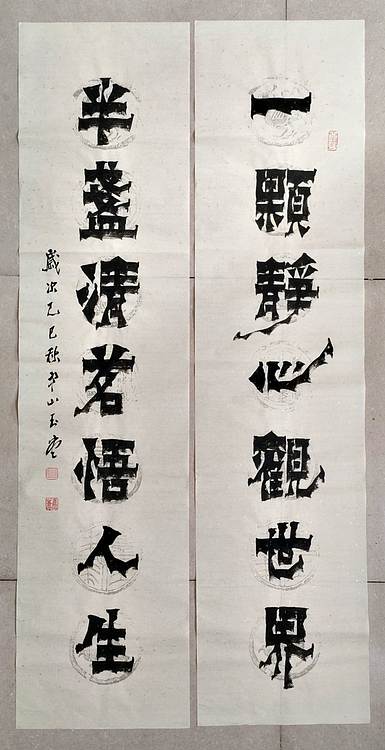 一顆靜心觀世界
半盞清茗悟人生
歲次乙巳秋